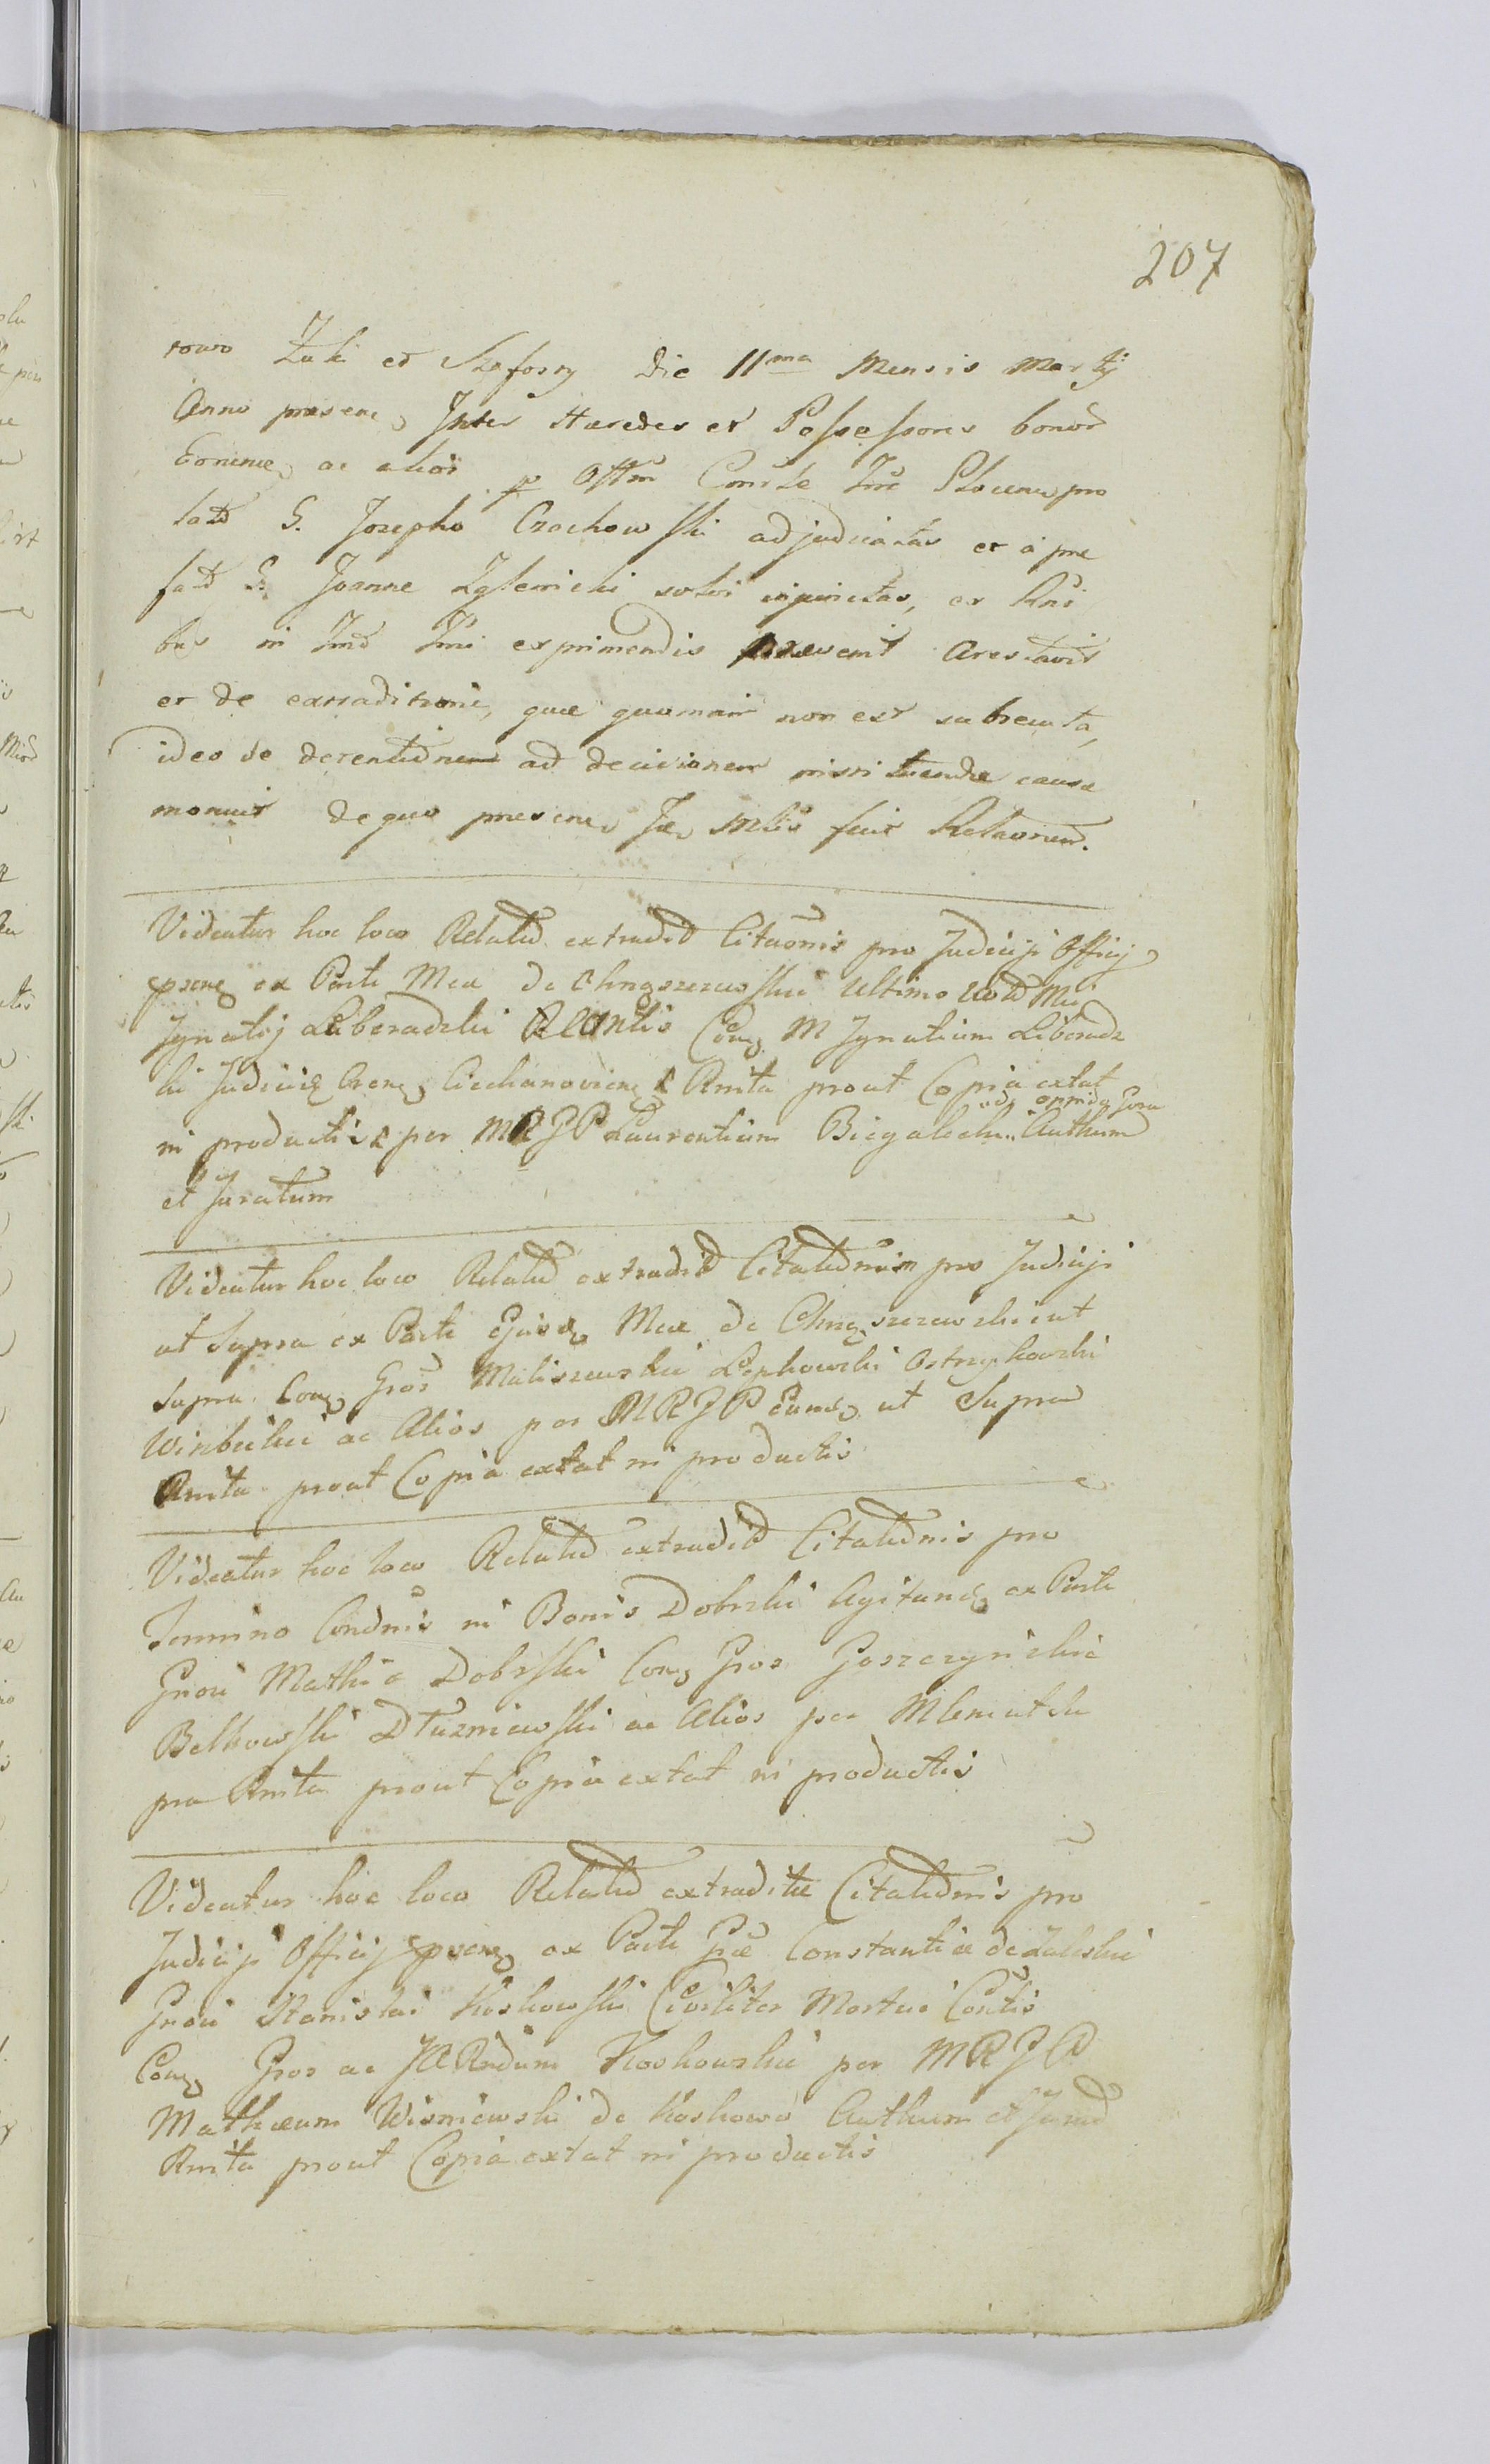 207
rowo Żaki et Szafory Die 11ma Mensis Martij
Anno praesen Inter Haeredes et Possessores bonor
ac alios p Offm Cons
lato G. Josepho Czachowski adjudicatas et a prae
fato G. Joanne Zglenicki solvi injunctas, ex
bus in exprimendis praevenit Arestavit
et de extraditione, quae quoniam non est subsecuta,
ideo de detentione ad decisionem instituendae causae
monuit de quo praesens fecit Relationem.
Videatur hoc loco Relatio extradit Citaonis pro Judicijs Officij
ex Parte Mcae de Chrąszczewskie Ultimo Mci
Ignatij Liberadzki Relantis Con M Ignatium Liberadz
ki Judicem Ciechanovien Rnita prout Copia extat
de oppido Gora
in productis per MRJP Laurentium Biegalski Authum
et Juratum
Videatur hoc loco Relatio extradit Citationum pro Judicijs
ut Supra ex Parte Ejusd Mcae de Chrąszczewskie ut
Supra Con Gros Maliszewskie Lepkowski Ostrzykowski
ac Alios per MRJP eund ut Supra
Rnita prout Copia extat in productis
Videatur hoc loco Relatio extradit Citationis pro
Termino Condnis in Bonis Dobrski Agitand ex Parte
Gnosi Mathia Dobrski Con Gros Goszczynskie
Belkowski Dłuzniewski ac Alios per
pra Rnita prout Copia extat in productis
Videatur hoc loco Relatio extraditae Citationis pro
Judicijs Officij ex Parte Gae Constantiae de Zaleskie
Gnosi Stanislai Koskowski Civiliter Mortui Contis
Con Gros ac Koskowskie per MRJP
Mathaeum Wisniewski de Koskowo Authum et Jurat
Rnita prout Copia extat in productis